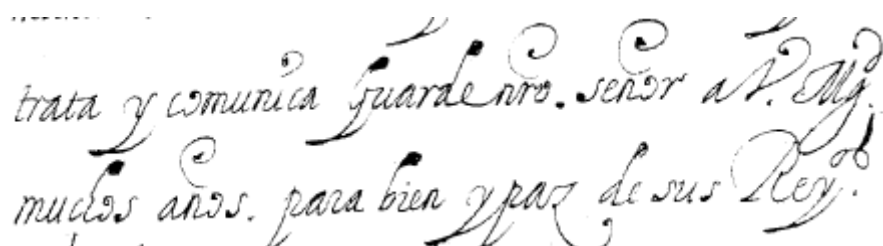 trata y comunica guarde nro. señor a V. Mgd.
muchos años. para bien y paz de sus Rey.os